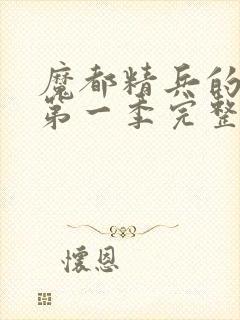 魔都精兵的
第一季完整
懷恩